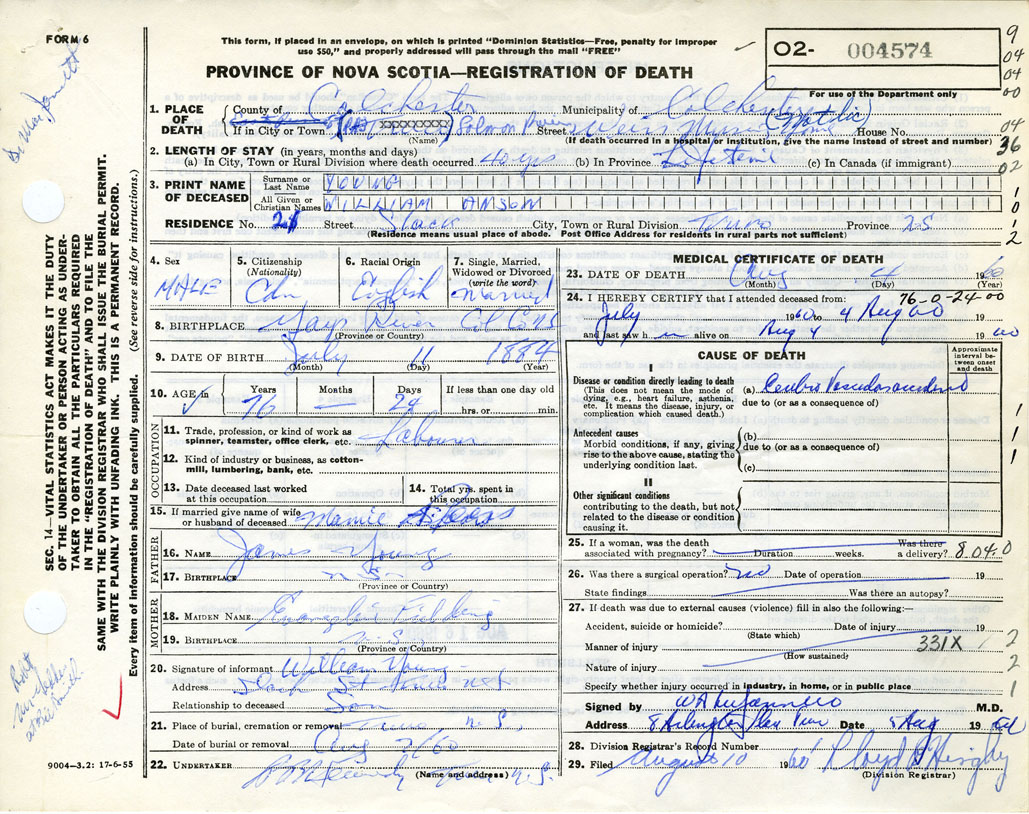 FORM 6
This form, if placed in an envelope, on which is printed "Dominion Statistics—Free, penalty for improper
use $50," and properly addressed will pass through the mail "FREE"
02- 004574
PROVINCE OF NOVA SCOTIA—REGISTRATION OF DEATH
For use of the Department only
9
04
04
00
04
36
02
1
0
1
2
1. PLACE OF DEATH
County of Colchester Municipality of Colchester
If in City or Town Truro Salmon River Street Weirs Nursing Home House No.
(Name) (If death occurred in a hospital or institution, give the name instead of street and number)
2. LENGTH OF STAY (in years, months and days)
(a) In City, Town or Rural Division where death occurred 40 yrs (b) In Province Lifetime (c) In Canada (if immigrant)
3. PRINT NAME OF DECEASED
Surname or Last Name YOUNG
All Given or Christian Names WILLIAM ANSON
RESIDENCE No. 21 Street City, Town or Rural Division Truro Province NS
(Residence means usual place of abode. Post Office Address for residents in rural parts not sufficient)
4. Sex
MALE
5. Citizenship
(Nationality)
Cdn
6. Racial Origin
English
7. Single, Married, Widowed or Divorced
(write the word)
Married
8. BIRTHPLACE Gays River Col Co NS
(Province or Country)
9. DATE OF BIRTH July 11 1884
(Month) (Day) (Year)
10. AGE IN
Years
76
Months
—
Days
24
If less than one day old
hrs. or min.
OCCUPATION
11. Trade, profession, or kind of work as
spinner, teamster, office clerk, etc. Labourer
12. Kind of industry or business, as cotton-
mill, lumbering, bank, etc.
13. Date deceased last worked
at this occupation
14. Total yrs. spent in
this occupation
15. If married give name of wife
or husband of deceased Mamie
FATHER
16. NAME James Young
17. BIRTHPLACE N.S.
(Province or Country)
MOTHER
18. MAIDEN NAME
19. BIRTHPLACE N.S.
(Province or Country)
20. Signature of informant William Young
Address St Truro NS
Relationship to deceased Son
21. Place of burial, cremation or removal Truro N.S.
Date of burial or removal Aug 7/60
22. UNDERTAKER N.S.
(Name and address)
MEDICAL CERTIFICATE OF DEATH
23. DATE OF DEATH Aug 4 1960
(Month) (Day) (Year)
76-0-24-00
24. I HEREBY CERTIFY that I attended deceased from:
July 1960 to 4 Aug 60 19
and last saw h m alive on Aug 4 19 60
CAUSE OF DEATH
Approximate interval between onset and death
I
Disease or condition directly leading to death
(This does not mean the mode of
dying, e.g., heart failure, asthenia,
etc. It means the disease, injury, or
complication which caused death.)
(a)
due to (or as a consequence of)
Antecedent causes
Morbid conditions, if any, giving
rise to the above cause, stating the
underlying condition last.
(b)
due to (or as a consequence of)
(c)
II
Other significant conditions
contributing to the death, but not
related to the disease or condition
causing it.
1
1
1
25. If a woman, was the death
associated with pregnancy? Duration weeks. Was there a delivery? 8 04.0
26. Was there a surgical operation? no Date of operation 19
State findings Was there an autopsy?
27. If death was due to external causes (violence) fill in also the following:—
Accident, suicide or homicide? Date of injury 19
(State which)
Manner of injury 331X
(How sustained)
Nature of injury
Specify whether injury occurred in industry, in home, or in public place
2
2
1
Signed by M.D.
Address Date 5 Aug 19 60
28. Division Registrar's Record Number
29. Filed August 10 1960 Lloyd
(Division Registrar)
SEC. 14—VITAL STATISTICS ACT MAKES IT THE DUTY
OF THE UNDERTAKER OR PERSON ACTING AS UNDER-
TAKER TO OBTAIN ALL THE PARTICULARS REQUIRED
IN THE "REGISTRATION OF DEATH" AND TO FILE THE
SAME WITH THE DIVISION REGISTRAR WHO SHALL ISSUE THE BURIAL PERMIT.
WRITE PLAINLY WITH UNFADING INK. THIS IS A PERMANENT RECORD.
Every item of information should be carefully supplied. (See reverse side for instructions.)
9004—3.2: 17-6-55